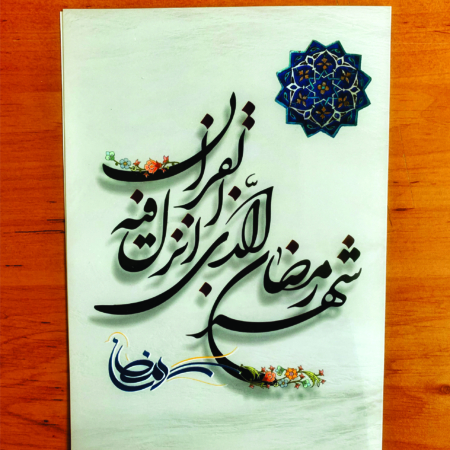 شهر رمضان الذی انزل فیه القران
رمضان